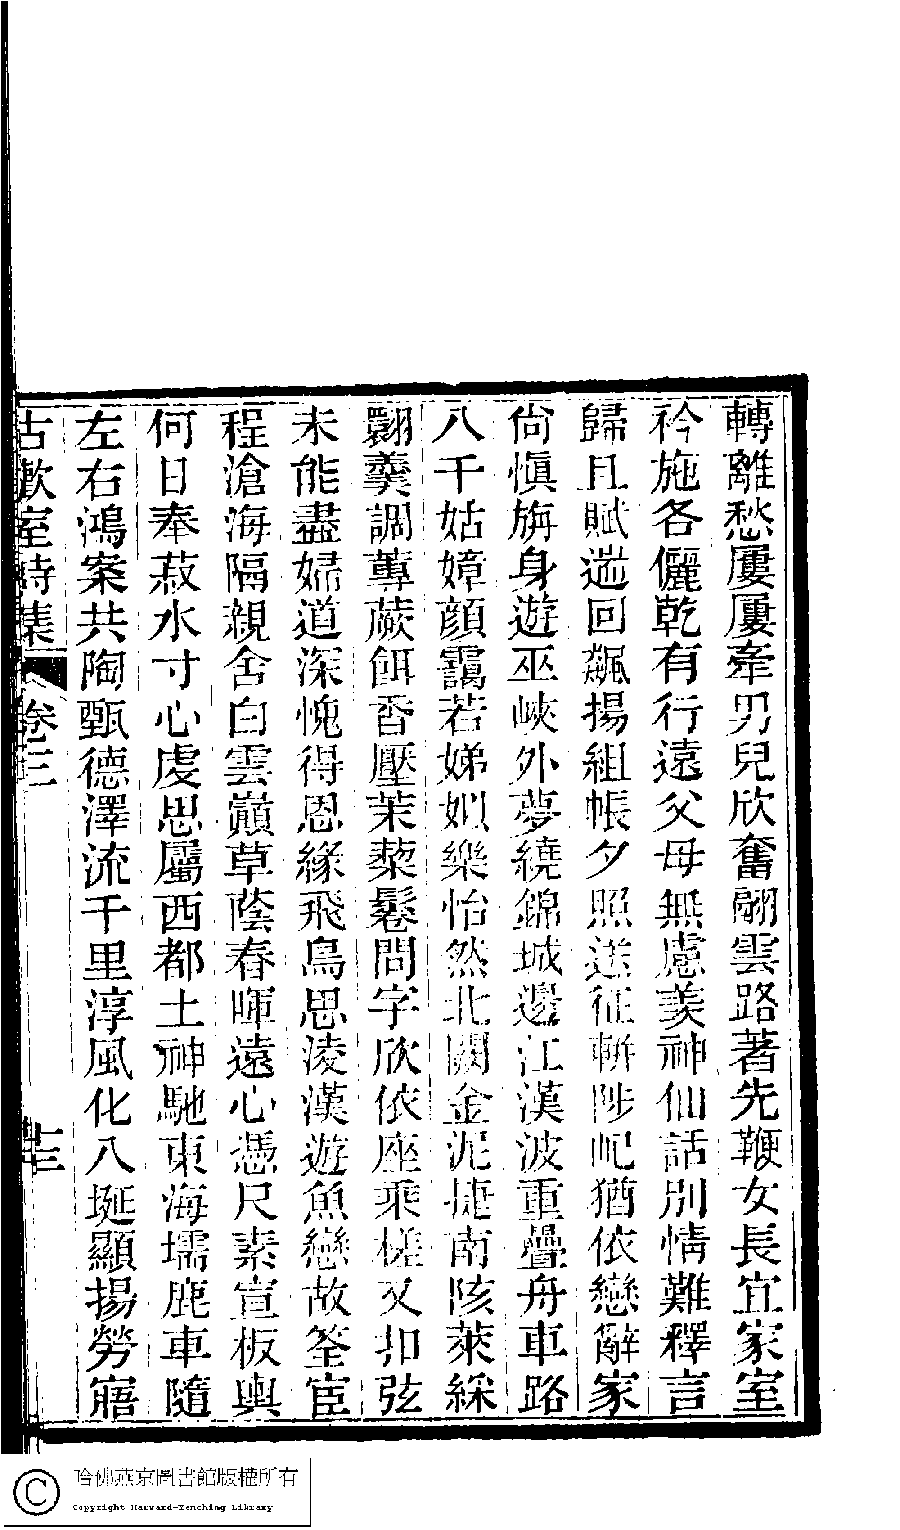 轉離愁屢屢牽男兒欣奮翮雲路著先鞭女長宜家室
衿施各儷乾有行遠父母無慮羨神仙話別情難釋言
歸且賦遄回飆揚組帳夕照送征輧陟屺猶依戀辭家
尙愼旃身遊巫峽外夢繞錦城邊江漢波重疊舟車路
八千姑嫜顏靄若娣姒樂怡然北闕金泥捷南陔萊綵
翾羹調蓴蕨餌香壓茉藜鬆問字欣依座乘槎又扣弦
未能盡婦道深愧得恩緣飛鳥思淩漢遊魚戀故筌宦
程滄海隔親舍白雲巔草蔭春暉遠心憑尺素宣板輿
何日奉菽水寸心虔思屬西都土神馳東海壖鹿車隨
左右鴻案共陶甄德澤流千里淳風化八埏顯揚勞寤
古歡室詩集 卷三 十三
哈佛燕京圖書館版權所有
Copyright Harvard-Yenching Library